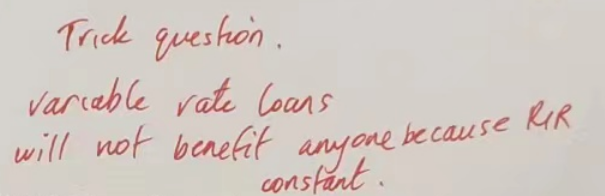 Trick question.
variable rate loans
will not benefit anyone because RIR
constant.